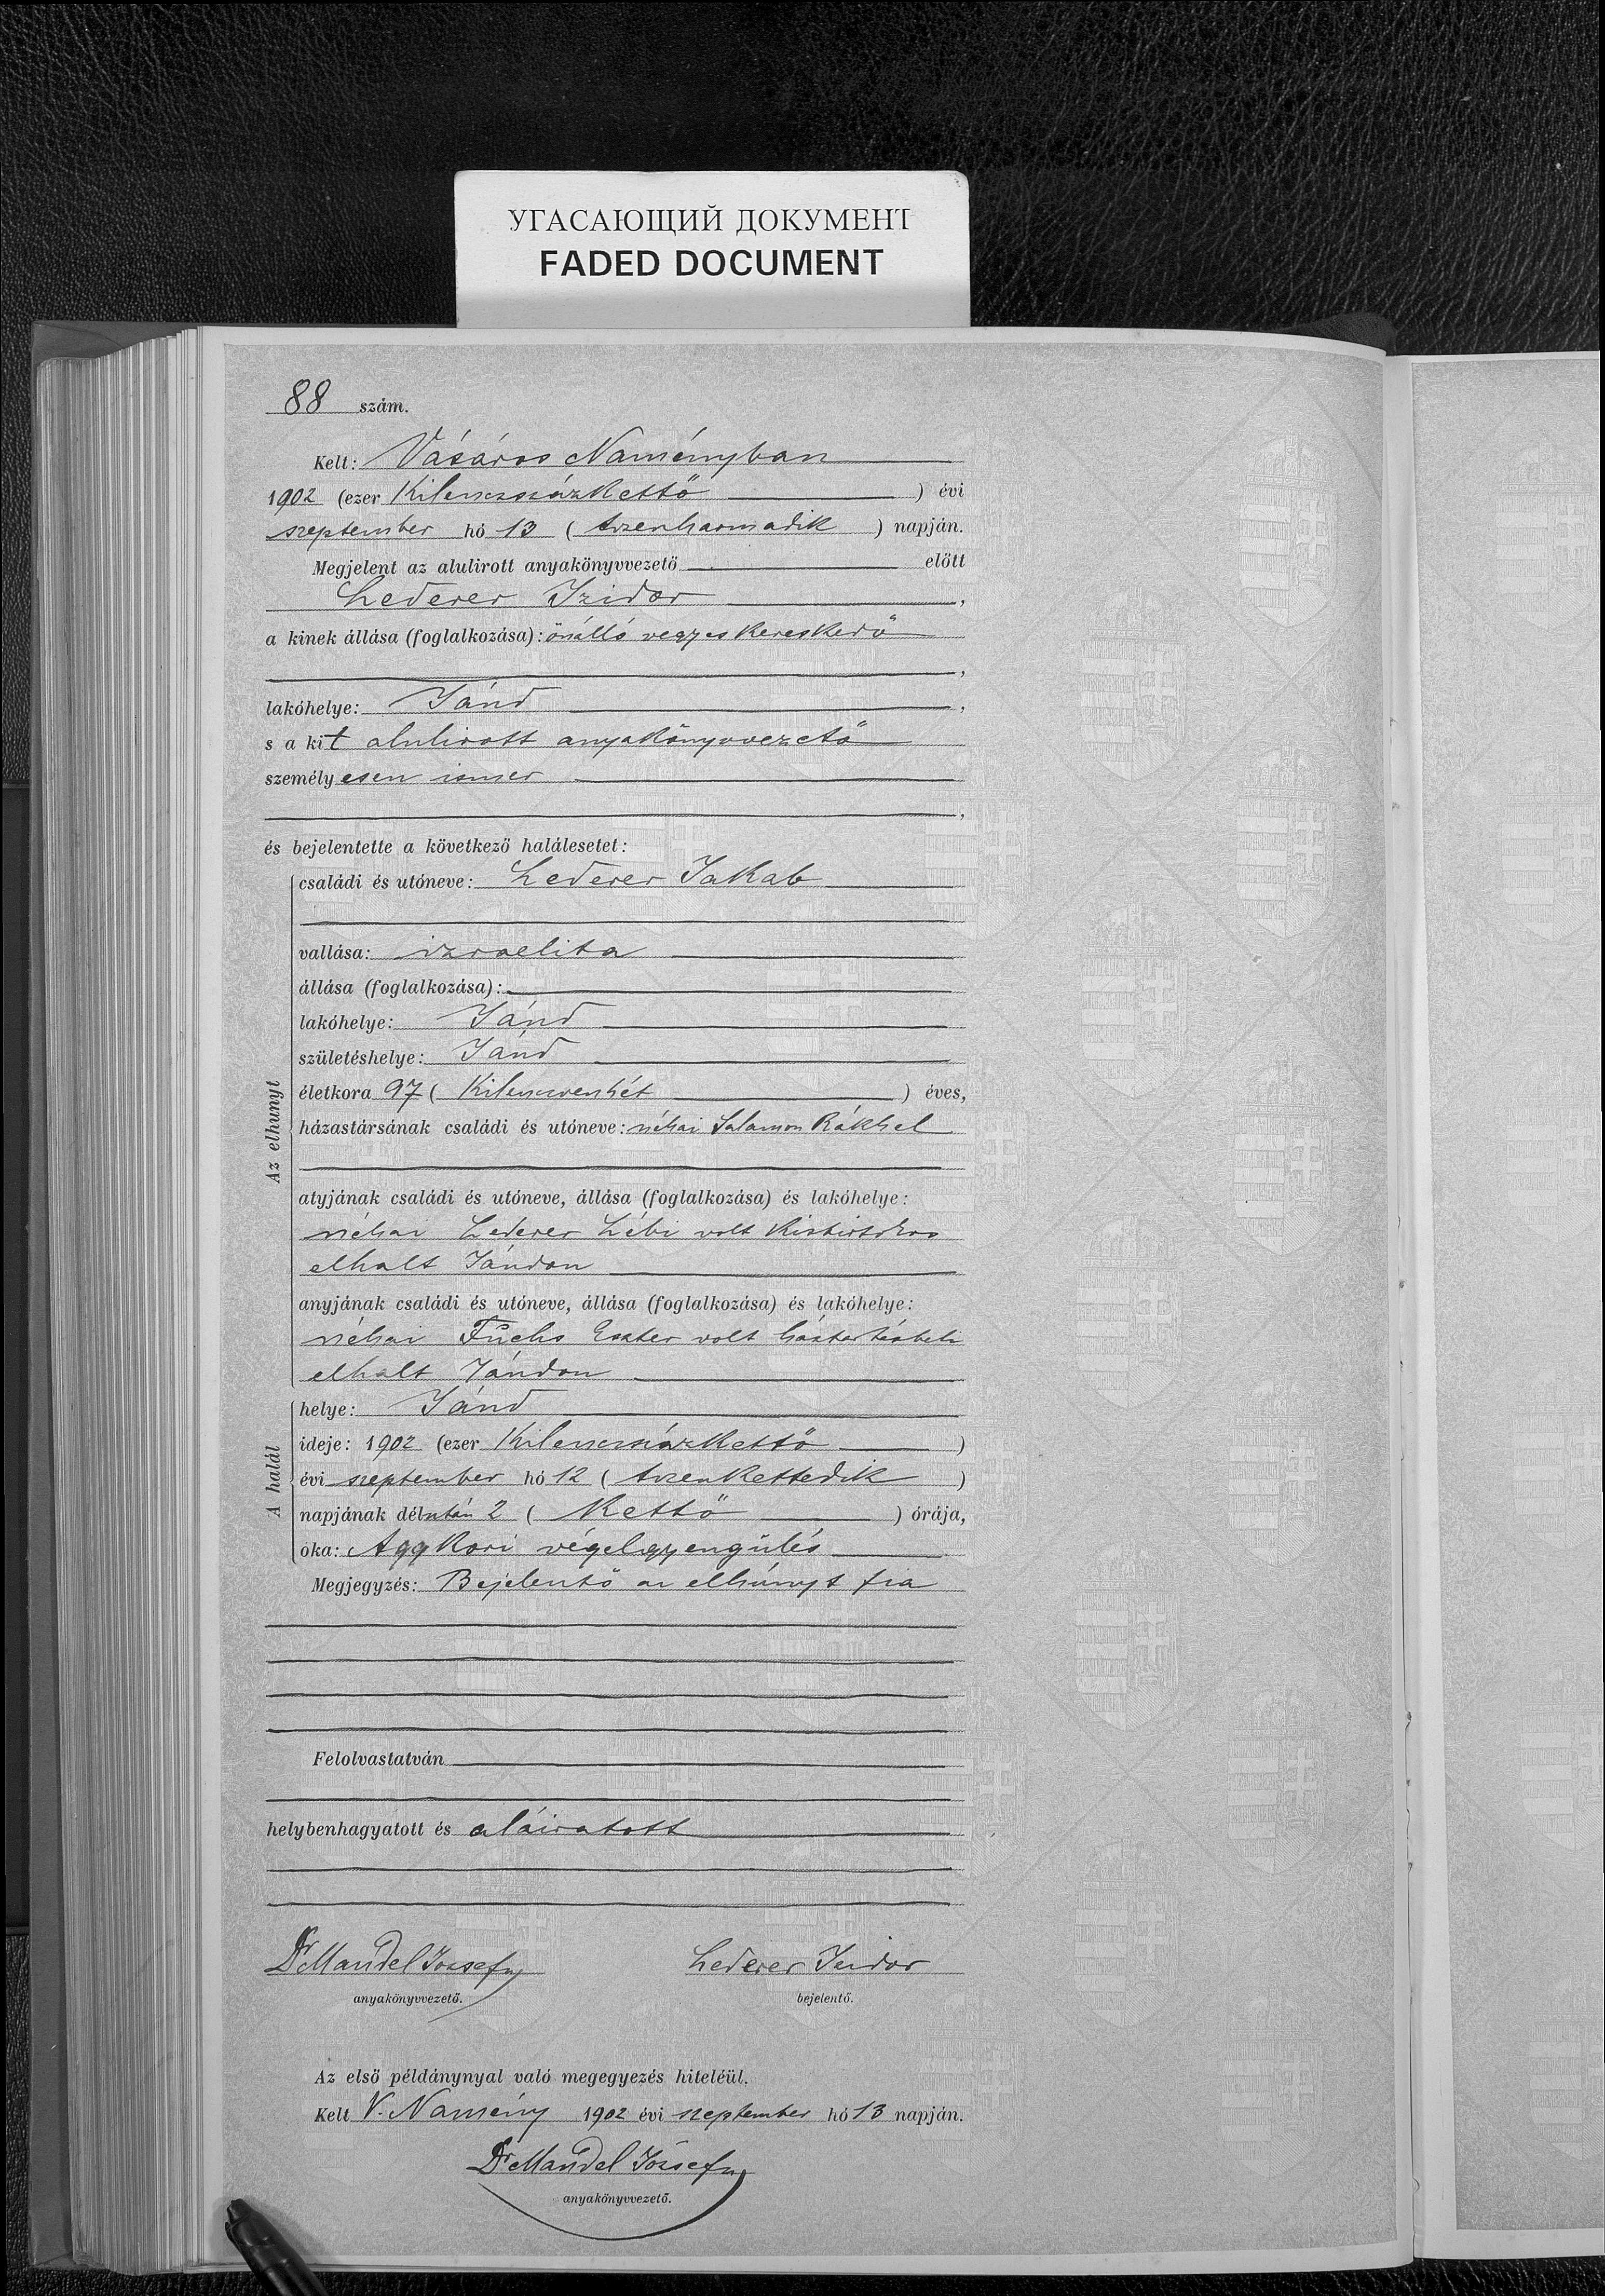 УГАСАЮЩИЙ ДОКУМЕНТ
FADED DOCUMENT
88 szám.
Kelt: Vásáros Naményban
1902 (ezer Kilenczszázkettő ) évi
szeptember hó 13 ( tizenharmadik ) napján.
Megjelent az alulirott anyakönyvvezető előtt
Lederer Izidor ,
a kinek állása (foglalkozása): önálló vegyes kereskedő
,
lakóhelye: Jánd ,
s a kit alulirott anyakönyvvezető
személyesen ismer
,
és bejelentette a következő halálesetet:
Az elhunyt
családi és utóneve: Lederer Jakab
vallása: izraelita
állása (foglalkozása):
lakóhelye: Jánd
születéshelye: Jánd
életkora 97 ( Kilenczvenhét ) éves,
házastársának családi és utóneve: néhai Salamon Rákhel
atyjának családi és utóneve, állása (foglalkozása) és lakóhelye:
néhai Lederer Lébi volt kisbirtokos
elhalt Jándon
anyjának családi és utóneve, állása (foglalkozása) és lakóhelye:
néhai Fuchs Eszter volt háztartásbeli
elhalt Jándon
A halál
helye: Jánd
ideje: 1902 (ezer Kilenczszázkettő )
évi szeptember hó 12 ( tizenkettedik )
napjának délután 2 ( Kettő ) órája,
oka: Aggkori végelgyengülés
Megjegyzés: Bejelentő az elhúnyt fia
Felolvastatván
helybenhagyatott és aláiratott
Dr Mandel József Lederer Izidor
anyakönyvvezető. bejelentő.
Az első példánynyal való megegyezés hiteléül.
Kelt V. Namény 1902 évi szeptember hó 13 napján.
Dr Mandel József
anyakönyvvezető.